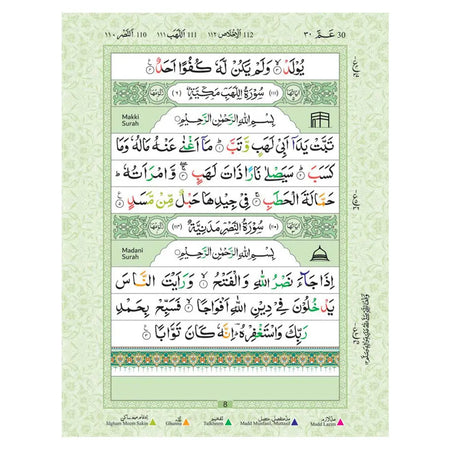 30 عَمَّ ٣٠
112 اَلْاِخْلَاص ١١٢
111 اَللَّهَب ١١١
110 اَلنَّصْر ١١٠
يُوْلَدْ ۙ وَلَمْ يَكُنْ لَّهٗ كُفُوًا اَحَدٌ
سُوْرَةُ اللَّهَبِ مَكِّيَّةٌ
Makki
Surah
بِسْمِ اللّٰهِ الرَّحْمٰنِ الرَّحِيْمِ
تَبَّتْ يَدَاۤ اَبِيْ لَهَبٍ وَّتَبَّ ؕ مَاۤ اَغْنٰى عَنْهُ مَالُهٗ وَمَا
كَسَبَ ؕ سَيَصْلٰى نَارًا ذَاتَ لَهَبٍ ۚ وَّامْرَاَتُهٗ ؕ
حَمَّالَةَ الْحَطَبِ ۚ فِيْ جِيْدِهَا حَبْلٌ مِّنْ مَّسَدٍ
سُوْرَةُ النَّصْرِ مَدَنِيَّةٌ
Madani
Surah
بِسْمِ اللّٰهِ الرَّحْمٰنِ الرَّحِيْمِ
اِذَا جَآءَ نَصْرُ اللّٰهِ وَالْفَتْحُ ۙ وَرَاَيْتَ النَّاسَ
يَدْخُلُوْنَ فِيْ دِيْنِ اللّٰهِ اَفْوَاجًا ۙ فَسَبِّحْ بِحَمْدِ
رَبِّكَ وَاسْتَغْفِرْهُ ؕ اِنَّهٗ كَانَ تَوَّابًا
8
Idgham Meem Sakin
Ghunna
Tafkheem
Madd Munfasil, Muttasil
Madd Lazim